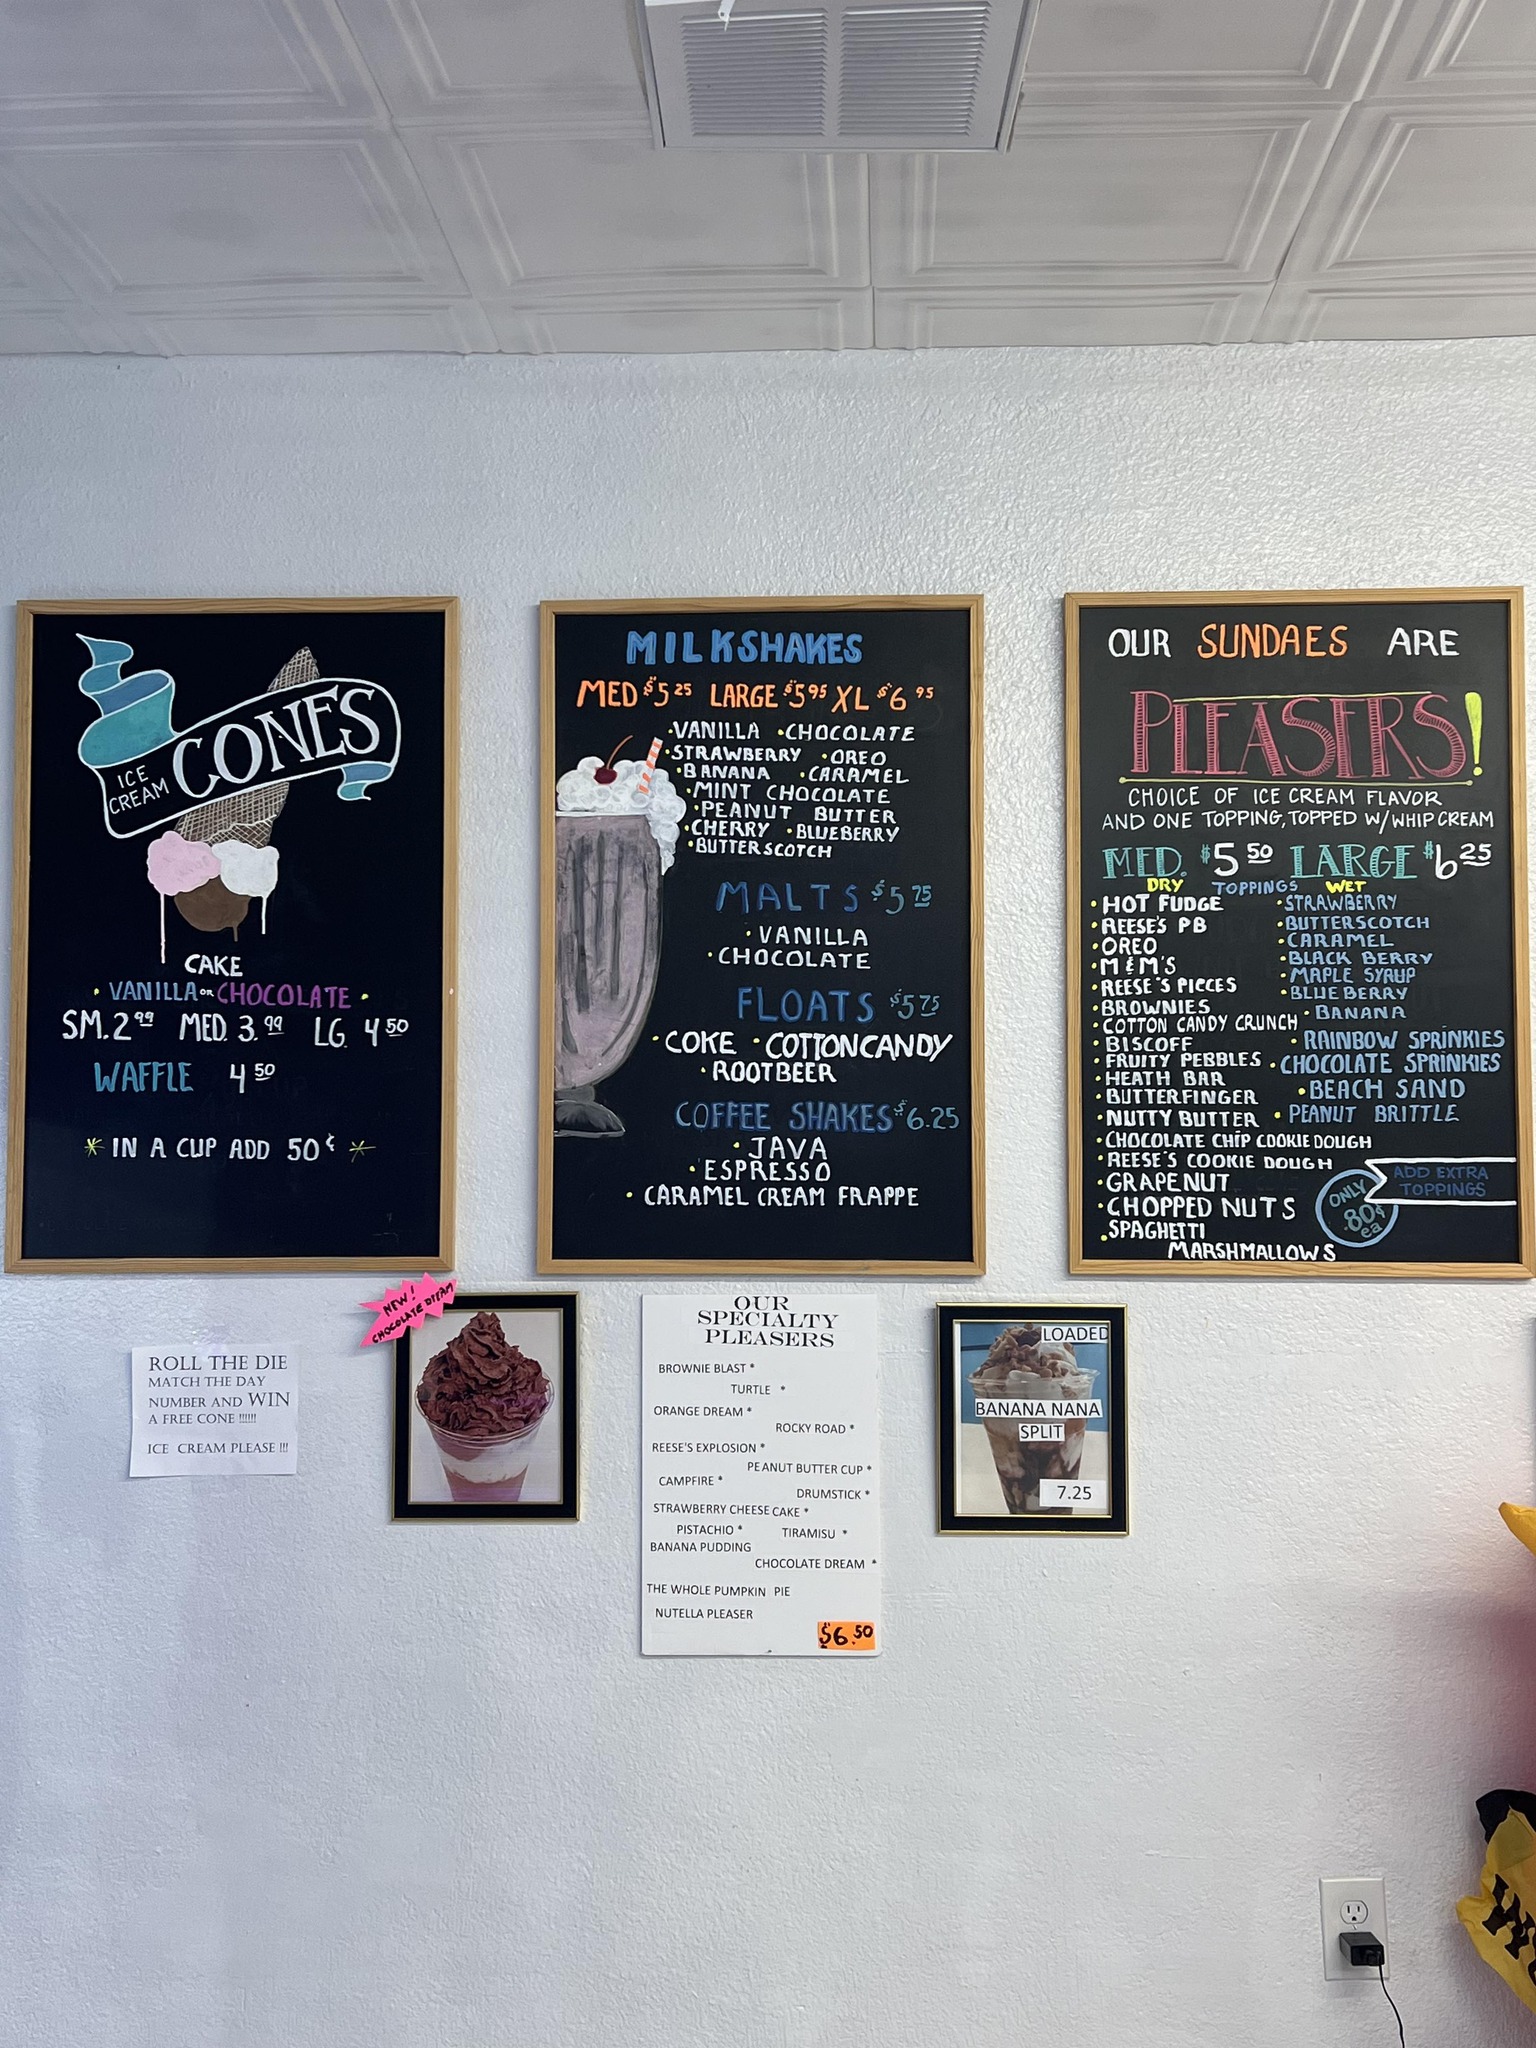 ICE
CREAM
CONES
CAKE
• VANILLA OR CHOCOLATE •
SM. 2 99 MED. 3. 99 LG. 4 50
WAFFLE 4 50
* IN A CUP ADD 50¢ *
MILKSHAKES
MED $5 25 LARGE $5 95 XL $6 95
• VANILLA • CHOCOLATE
• STRAWBERRY • OREO
• BANANA • CARAMEL
• MINT CHOCOLATE
• PEANUT BUTTER
• CHERRY • BLUEBERRY
• BUTTERSCOTCH
MALTS $5 75
• VANILLA
• CHOCOLATE
FLOATS $5 75
• COKE • COTTONCANDY
• ROOTBEER
COFFEE SHAKES $6.25
• JAVA
• ESPRESSO
• CARAMEL CREAM FRAPPE
OUR SUNDAES ARE
PLEASERS!
CHOICE OF ICE CREAM FLAVOR
AND ONE TOPPING, TOPPED W/WHIP CREAM
MED. $5 50 LARGE $6 25
DRY TOPPINGS WET
• HOT FUDGE
• REESE'S PB
• OREO
• M&M'S
• REESE'S PIECES
• BROWNIES
• COTTON CANDY CRUNCH
• BISCOFF
• FRUITY PEBBLES
• HEATH BAR
• BUTTERFINGER
• NUTTY BUTTER
• CHOCOLATE CHIP COOKIE DOUGH
• REESE'S COOKIE DOUGH
• GRAPENUT
• CHOPPED NUTS
• SPAGHETTI
MARSHMALLOWS
• STRAWBERRY
• BUTTERSCOTCH
• CARAMEL
• BLACK BERRY
• MAPLE SYRUP
• BLUEBERRY
• BANANA
• RAINBOW SPRINKIES
• CHOCOLATE SPRINKIES
• BEACH SAND
• PEANUT BRITTLE
ADD EXTRA
TOPPINGS
ONLY
.80¢
ea
ROLL THE DIE
MATCH THE DAY
NUMBER AND WIN
A FREE CONE !!!!!!
ICE CREAM PLEASE !!!
NEW!
CHOCOLATE DREAM
OUR
SPECIALTY
PLEASERS
BROWNIE BLAST *
TURTLE *
ORANGE DREAM *
ROCKY ROAD *
REESE'S EXPLOSION *
PEANUT BUTTER CUP *
CAMPFIRE *
DRUMSTICK *
STRAWBERRY CHEESE CAKE *
PISTACHIO * TIRAMISU *
BANANA PUDDING
CHOCOLATE DREAM *
THE WHOLE PUMPKIN PIE
NUTELLA PLEASER
$6.50
LOADED
BANANA NANA
SPLIT
7.25